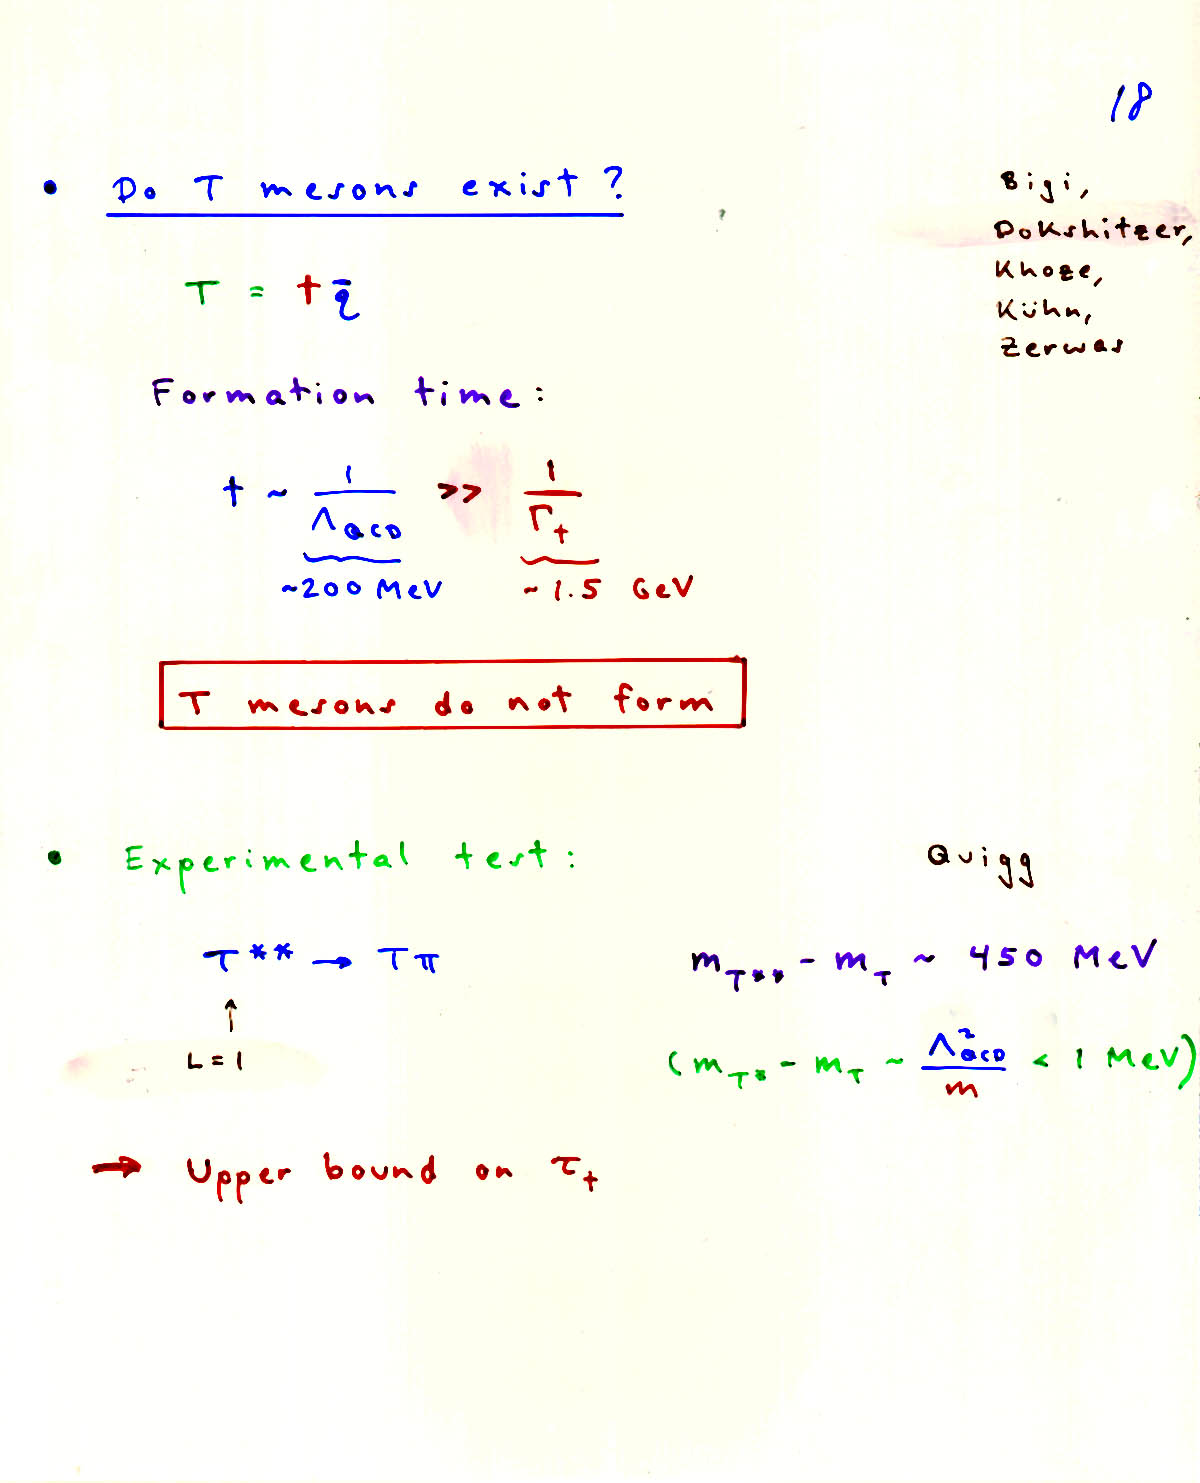 18
• Do T mesons exist?
Bigi,
Dokshitzer,
Khoze,
Kühn,
Zerwas
T = t q̄
Formation time:
t ~ 1/Λ_QCD >> 1/Γ_t
~200 MeV ~1.5 GeV
T mesons do not form
• Experimental test:
Quigg
T** → Tπ
m_T** - m_T ~ 450 MeV
↑
L=1
(m_T* - m_T ~ Λ²_QCD/m < 1 MeV)
→ Upper bound on τ_t